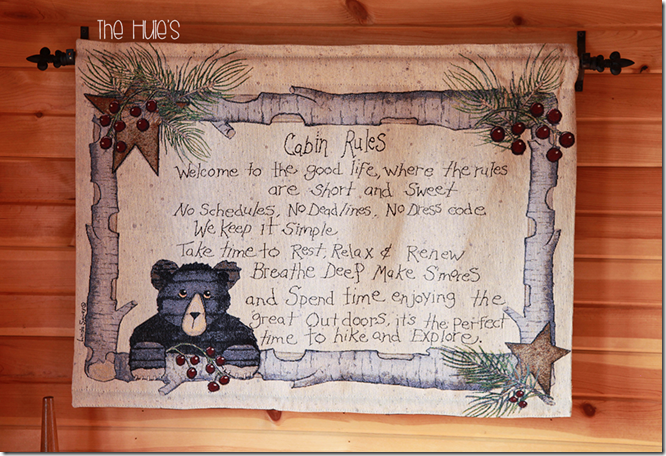 The Hule's
Cabin Rules
Welcome to the good life, where the rules
are short and sweet
No Schedules, No Deadlines, No Dress code.
We Keep it Simple
Take time to Rest, Relax & Renew
Breathe Deep Make S'mores
and Spend time enjoying the
great Outdoors, it's the perfect
time to hike and Explore.